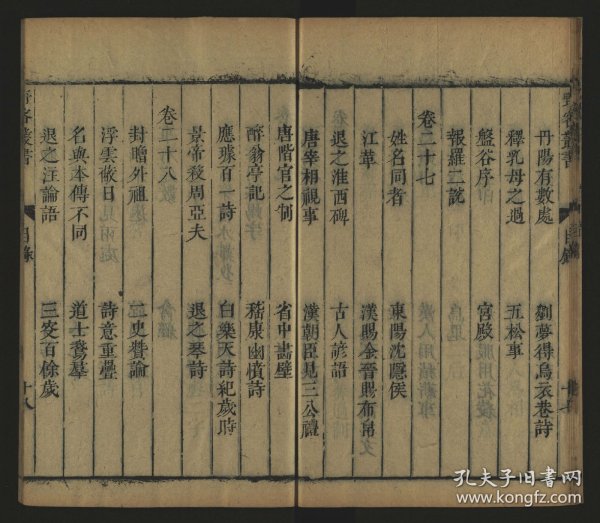 丹陽有數處 劉夢得烏衣巷詩
釋乳母之過 五松事
盤谷序 宮殿
報羅二說
卷二十七
姓名同者 東陽沈隱侯
江革 漢賜金晉賜布帛
退之淮西碑 古人諺語
唐宰相視事 漢朝臣見三公禮
唐階官之制 省中畫壁
醉翁亭記 嵇康幽憤詩
應璩百一詩 白樂天詩紀歲時
景帝殺周亞夫 退之琴詩
卷二十八
封贈外祖 二史贊論
浮雲蔽日 詩意重疊
名與本傳不同 道士鵞羣
退之注論語 三女百餘歲
野客叢書 目錄 十八
孔夫子旧书网
www.kongfz.com